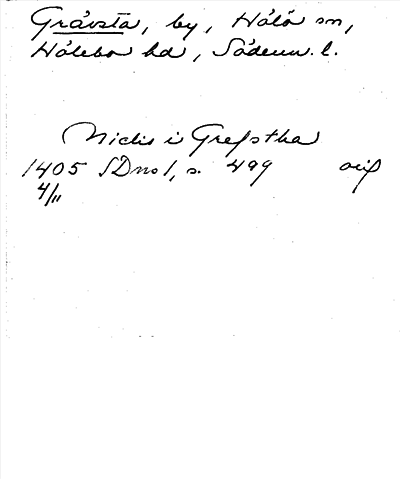 Grävsta, by, Hölö sn,
Hölebo hd, Söderm. l.
Niclis i Grefstha
1405 SDns 1, s. 499 orig
4/11